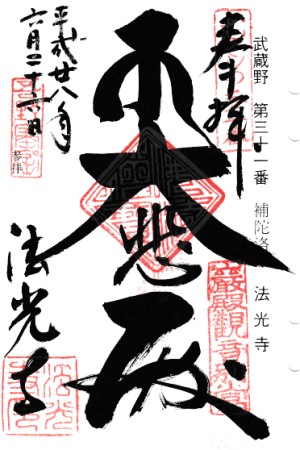 武蔵野 第三十一番 補陀洛 法光寺
奉拝
大悲殿
平成廿八年
六月二十六日
参拝
法光寺